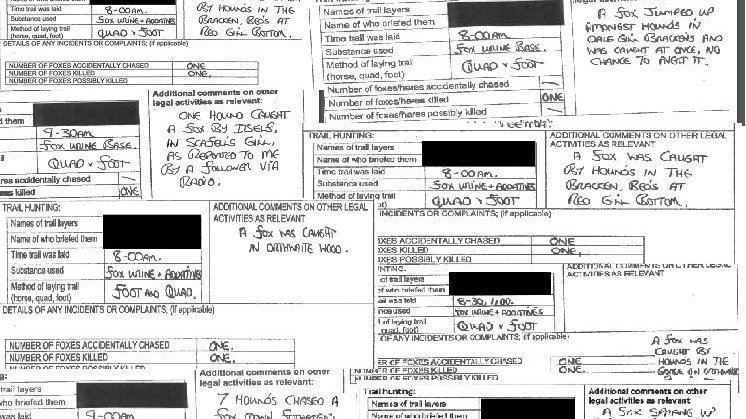 Time trail was laid 8-00AM.
Substance used FOX URINE + ADDATINES
Method of laying trail
(horse, quad, foot) QUAD + FOOT
BY HOUNDS IN THE
BRACKEN, REO'S AT
RED GILL BOTTOM.
DETAILS OF ANY INCIDENTS OR COMPLAINTS; (if applicable)
NUMBER OF FOXES ACCIDENTALLY CHASED ONE
NUMBER OF FOXES KILLED ONE.
NUMBER OF FOXES POSSIBLY KILLED
Names of trail layers
Name of who briefed them
Time trail was laid 8-00AM.
Substance used FOX URINE BASE.
Method of laying trail
(horse, quad, foot) QUAD + FOOT
Number of foxes accidentally chased
Number of foxes/hares killed ONE
Number of foxes/hares possibly killed
A FOX JUMPED UP
AMONGST HOUNDS IN
DALE GILL BRACKENS AND
WAS CAUGHT AT ONCE, NO
CHANCE TO AVERT IT.
d them
9-30AM.
FOX URINE BASE.
QUAD + FOOT
ares accidentally chased
ares killed ONE
Additional comments on other
legal activities as relevant:
ONE HOUND CAUGHT
A FOX BY ITSELF,
IN SCALES GILL,
AS REPORTED TO ME
BY A FOLLOWER VIA
RADIO.
TRAIL HUNTING:
Names of trail layers
Name of who briefed them
Time trail was laid 8-00AM.
Substance used FOX URINE + ADDATINES
Method of laying trail
QUAD + FOOT
ADDITIONAL COMMENTS ON OTHER LEGAL
ACTIVITIES AS RELEVANT
A FOX WAS CAUGHT
BY HOUNDS IN THE
BRACKEN, REO'S AT
RED GILL BOTTOM.
TRAIL HUNTING:
Names of trail layers
Name of who briefed them
Time trail was laid 8-00AM.
Substance used FOX URINE + ADDATINES
Method of laying trail
(horse, quad, foot) FOOT AND QUAD.
ADDITIONAL COMMENTS ON OTHER LEGAL
ACTIVITIES AS RELEVANT
A FOX WAS CAUGHT
IN ORTHWAITE WOOD.
DETAILS OF ANY INCIDENTS OR COMPLAINTS, (if applicable)
NUMBER OF FOXES ACCIDENTALLY CHASED ONE.
NUMBER OF FOXES KILLED ONE.
INCIDENTS OR COMPLAINTS; (if applicable)
OXES ACCIDENTALLY CHASED ONE
OXES KILLED ONE.
OXES POSSIBLY KILLED
NTING:
of trail layers
of who briefed them
ail was laid 8-30, 11.00.
nce used FOX URINE + ADDATINES
of laying trail
quad, foot) QUAD + FOOT
ACTIVITIES AS RELEVANT
OF ANY INCIDENTS OR COMPLAINTS; (if applicable)
ER OF FOXES ACCIDENTALLY CHASED ONE
ER OF FOXES KILLED ONE
A FOX WAS
CAUGHT BY
HOUNDS IN THE
GORSE ON ORTHWAITE
g:
layers
briefed them
was laid 9-00AM
Additional comments on other
legal activities as relevant:
7 HOUNDS CHASED A
FOX DOWN
Trail hunting:
Names of trail layers
Name of who briefed them
Additional comments on other
legal activities as relevant:
A FOX